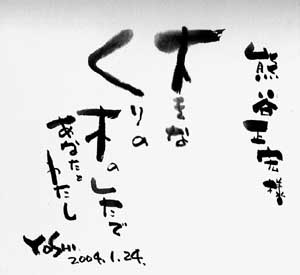 熊谷正宏様
大きな
くりの
木のしたで
あなたと
わたし
YOSHI.
2004.1.24.